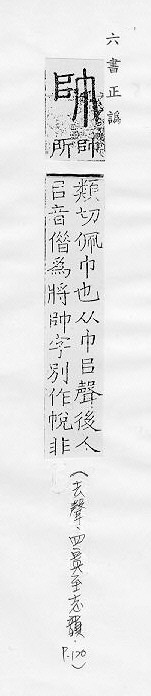 六書正譌
帥
帥
所
類切佩巾也从巾𠂤聲後人
㠯音借爲將帥字別作帨非
(去聲、四寘至志韻. P.120)